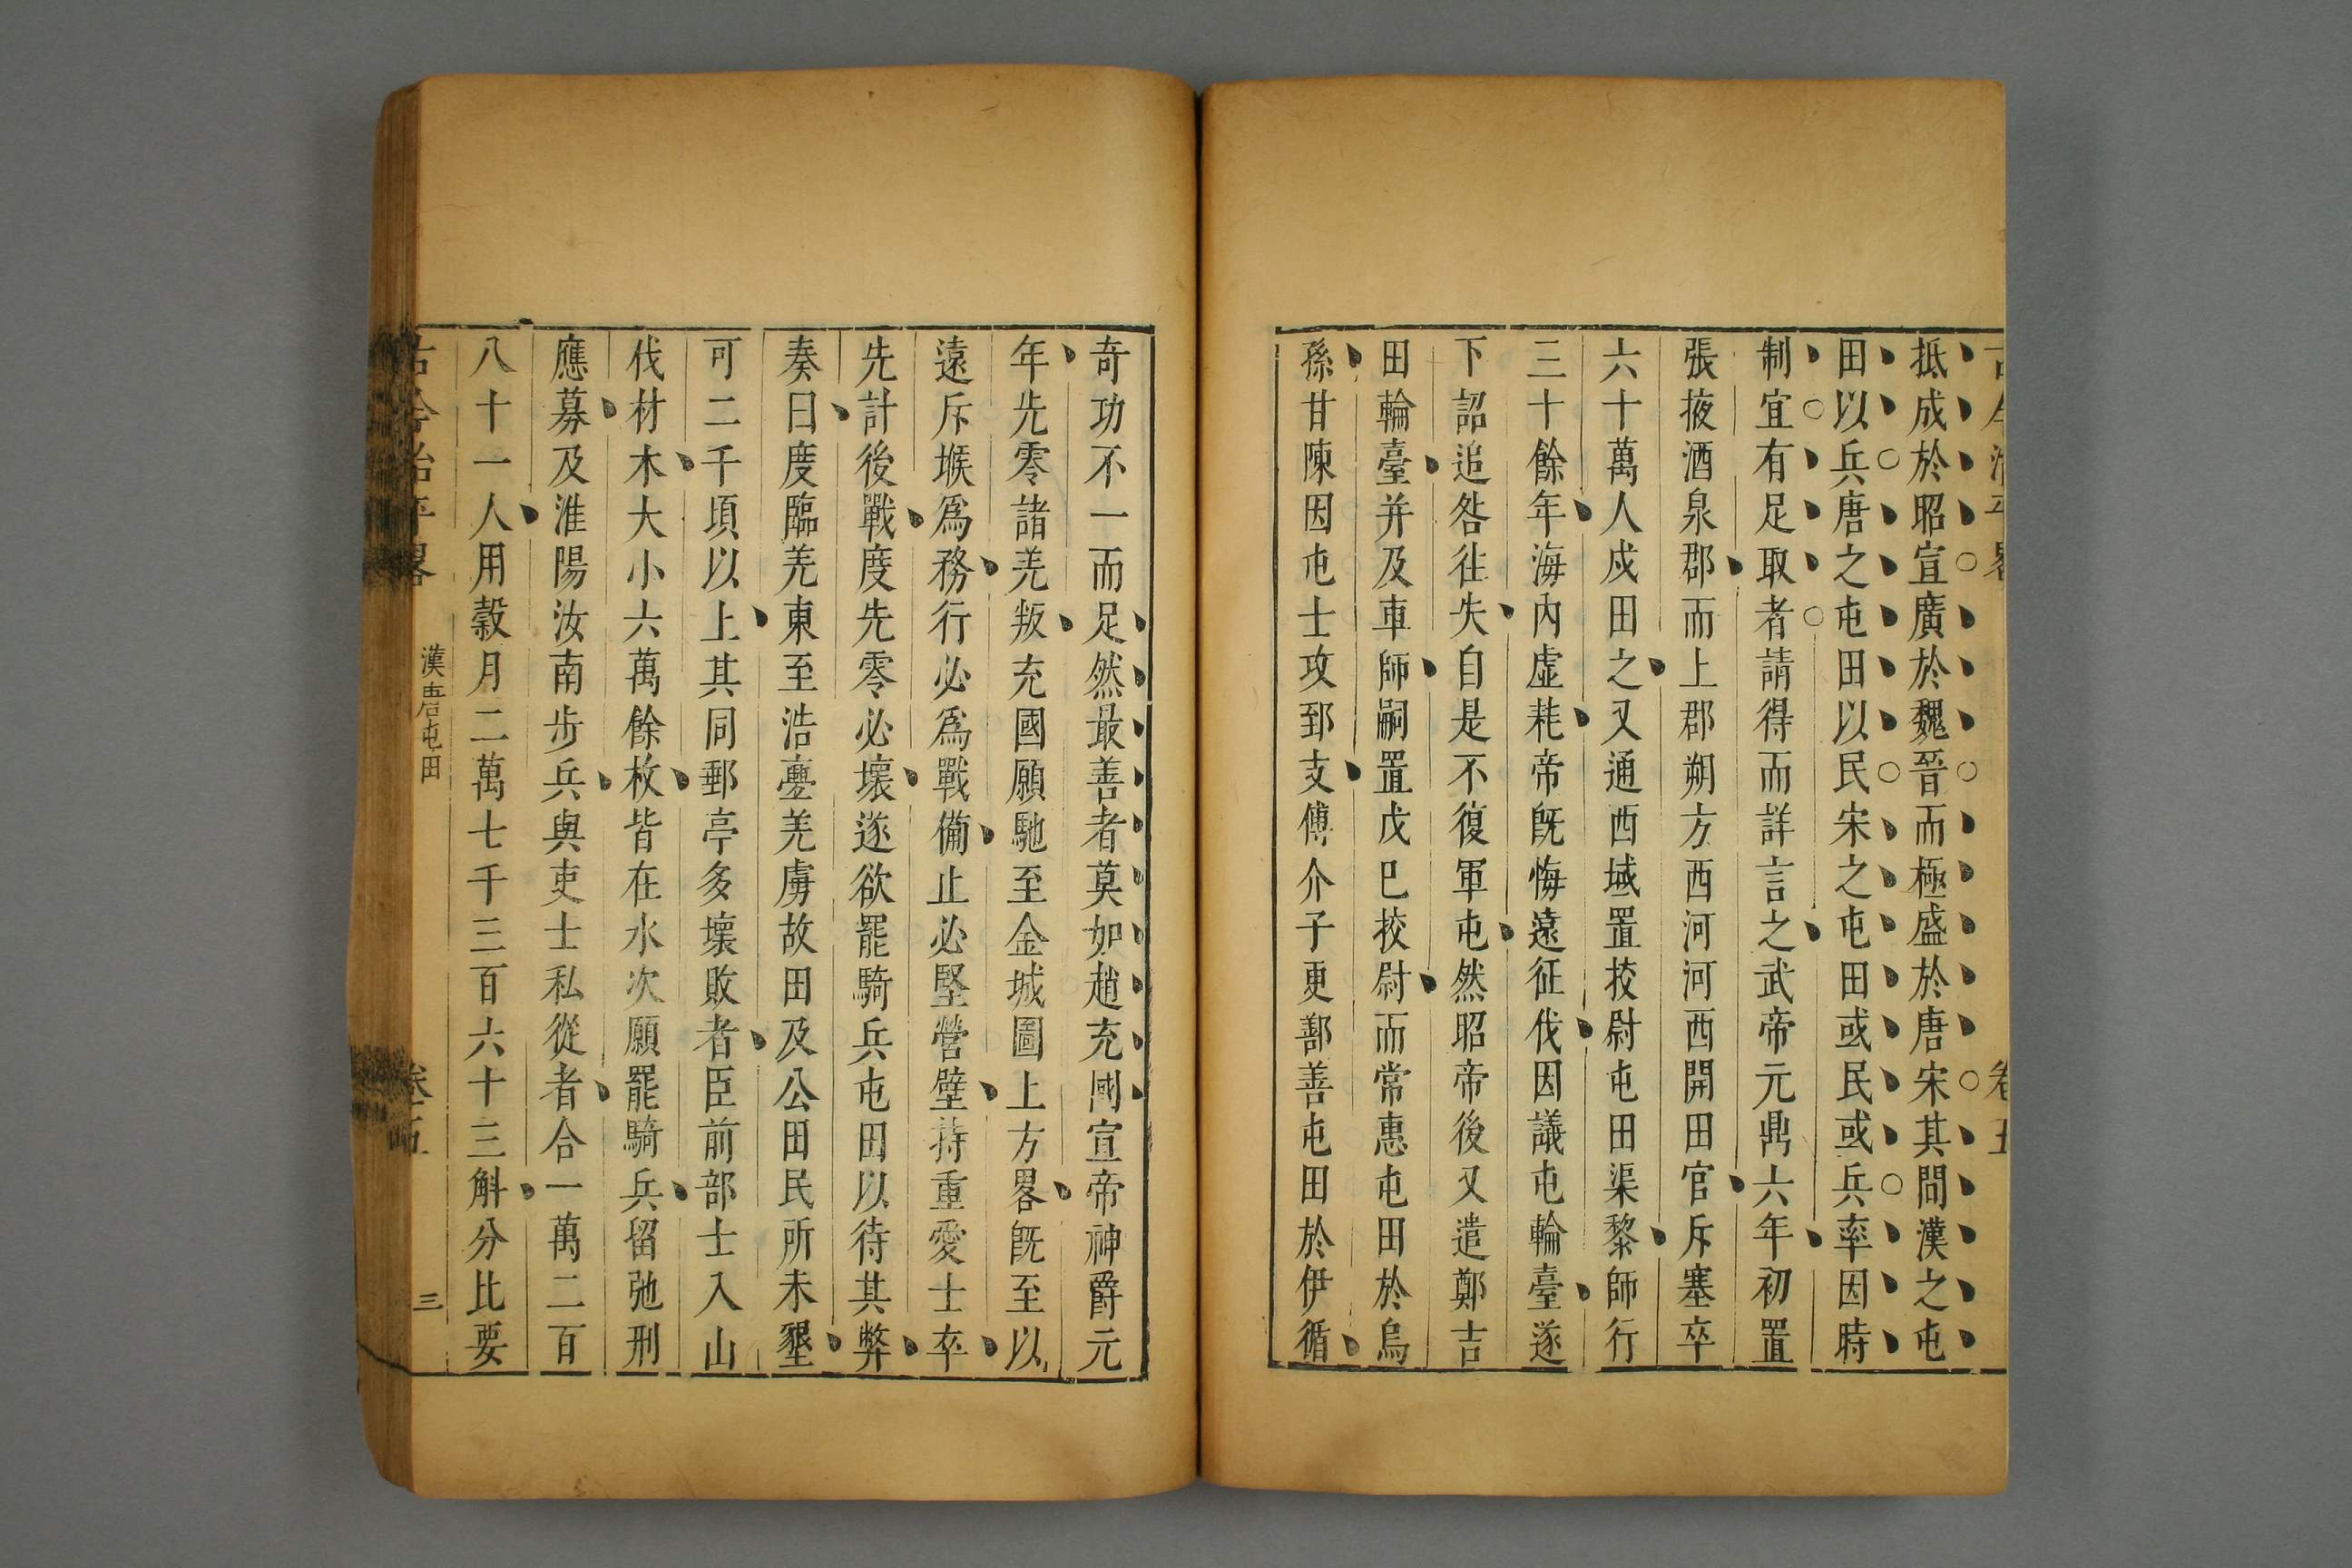 抵成於昭宣廣於魏晉而極盛於唐宋其間漢之屯
田以兵唐之屯田以民宋之屯田或民或兵率因時
制宜有足取者請得而詳言之武帝元鼎六年初置
張掖酒泉郡而上郡朔方西河河西開田官斥塞卒
六十萬人戍田之又通西域置挍尉屯田渠黎師行
三十餘年海內虛耗帝旣悔遠征伐因議屯輪臺遂
下詔追咎徃失自是不復軍屯然昭帝後又遣鄭吉
田輪臺并及車師嗣置戊巳挍尉而常惠屯田於烏
孫甘陳因屯士攻郅支傅介子更鄯善屯田於伊循
奇功不一而足然最善者莫如趙充國宣帝神爵元
年先零諸羌叛充國願馳至金城圖上方畧旣至以
遠斥堠爲務行必爲戰備止必堅營壁持重愛士卒
先計後戰度先零必壞遂欲罷騎兵屯田以待其弊
奏曰度臨羌東至浩亹羌虜故田及公田民所未墾
可二千頃以上其同郵亭多壞敗者臣前部士入山
伐材木大小六萬餘枚皆在水次願罷騎兵留弛刑
應募及淮陽汝南步兵與吏士私從者合一萬二百
八十一人用穀月二萬七千三百六十三斛分比要
古今治平畧 漢唐屯田 卷五 三